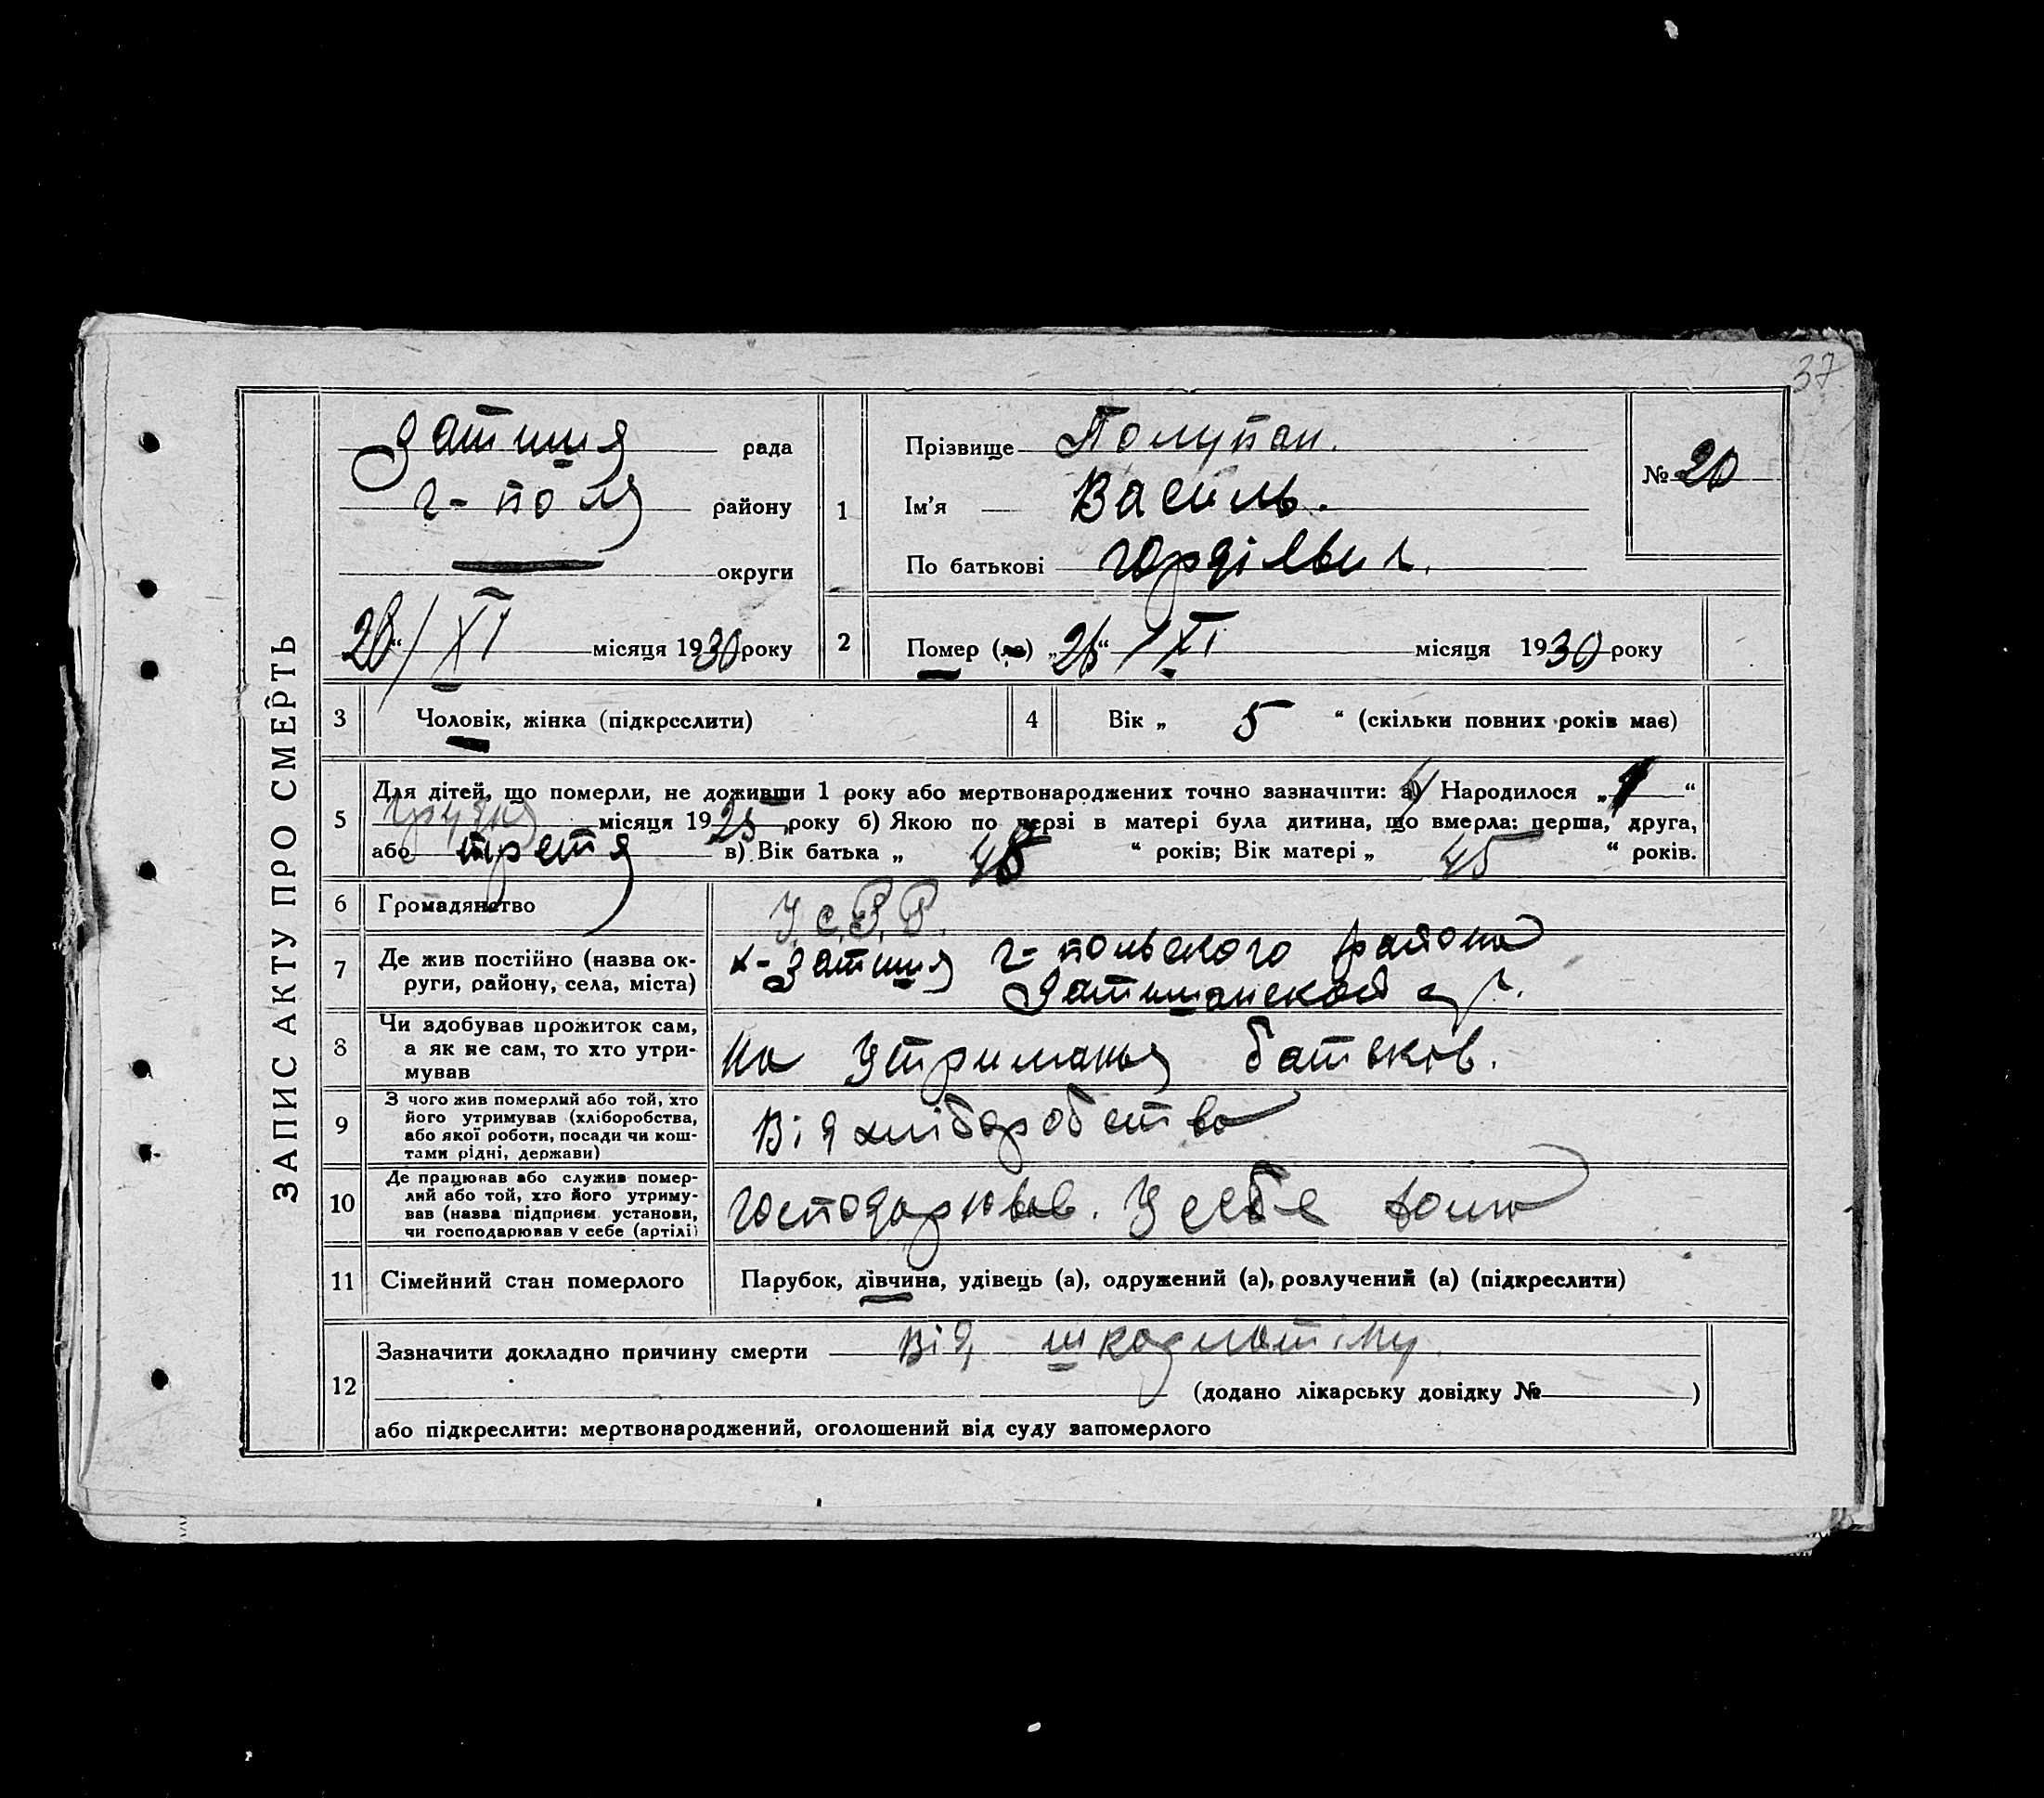 37
ЗАПИС АКТУ ПРО СМЕРТЬ
Затишшя рада
г-поля району
округи
28/XI місяця 1930 року
1
Прізвище Полупан.
Ім'я Василь.
По батькові Гордієвич.
№ 20
2
Помер (ла) „26“ /XI місяця 1930 року
3 Чоловік, жінка (підкреслити)
4 Вік „ 5 “ (скільки повних років має)
5 Для дітей, що померли, не доживши 1 року або мертвонароджених точно зазначити: а) Народилося „ “
грудня місяця 1925 року б) Якою по черзі в матері була дитина, що вмерла: перша, друга,
або третя в) Вік батька „ 48 “ років; Вік матері „ 45 “ років.
6 Громадянство У.С.Р.Р.
7 Де жив постійно (назва ок-
руги, району, села, міста)
х-Затишя г-польского района
Затишанской с/р.
8 Чи здобував прожиток сам,
а як не сам, то хто утри-
мував
На утриманья батьков.
9 З чого жив померлий або той, хто
його утримував (хліборобства,
або якої роботи, посади чи кош-
тами рідні, держави)
Від хліборобства
10 Де працював або служив помер-
лий або той, хто його утриму-
вав (назва підприєм. установи,
чи господарював у себе (артілі)
Господарював. У себе дома
11 Сімейний стан померлого
Парубок, дівчина, удівець (а), одружений (а), розлучений (а) (підкреслити)
12 Зазначити докладно причину смерти Від шкарлатіну.
(додано лікарську довідку № )
або підкреслити: мертвонароджений, оголошений від суду запомерлого